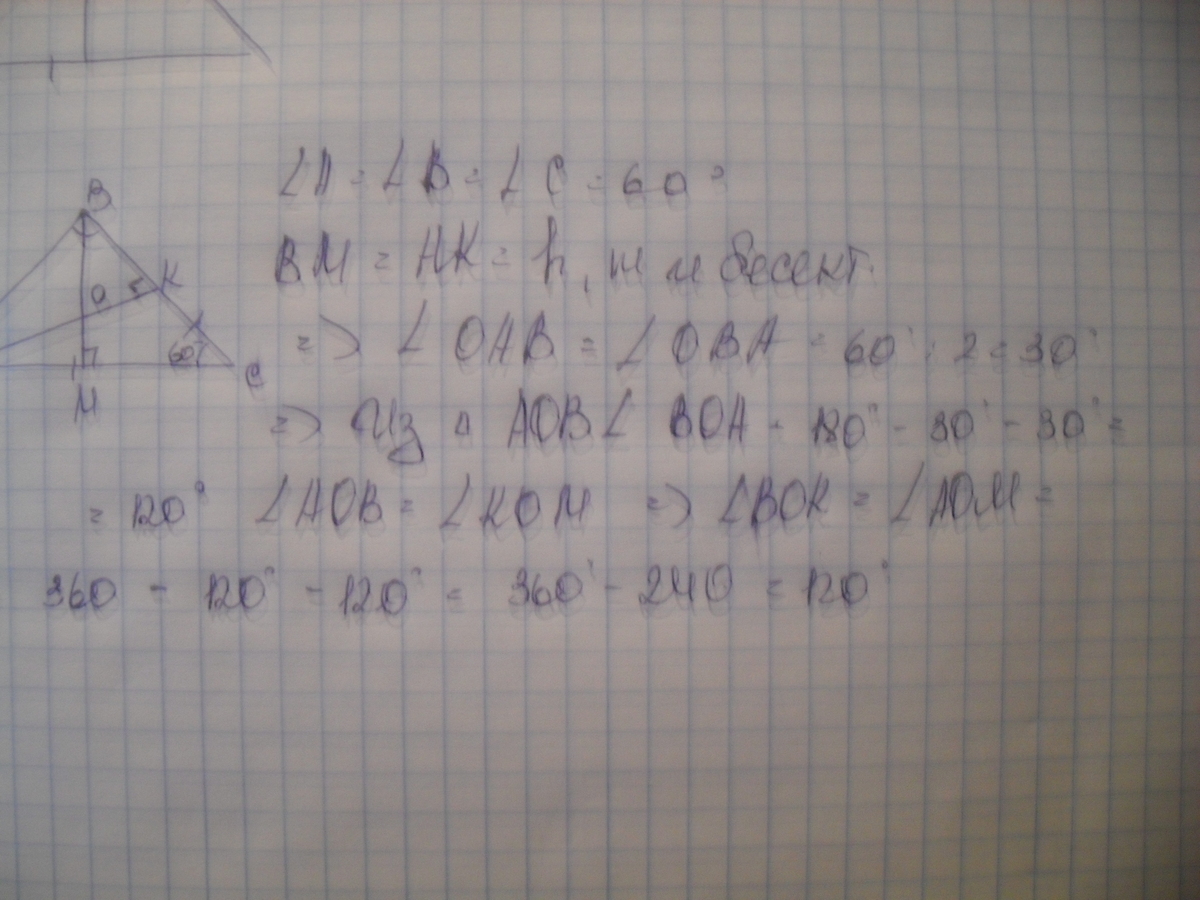 ∠A = ∠B = ∠C = 60°
BM = AK = h, m и бесект.
=> ∠OAB = ∠OBA = 60° : 2 = 30°
=> Из △ AOB ∠ BOA = 180° - 30° - 30° =
= 120° ∠AOB = ∠KOM => ∠BOK = ∠AOM =
360 - 120° - 120° = 360° - 240 = 120°
B
O
K
60°
C
M